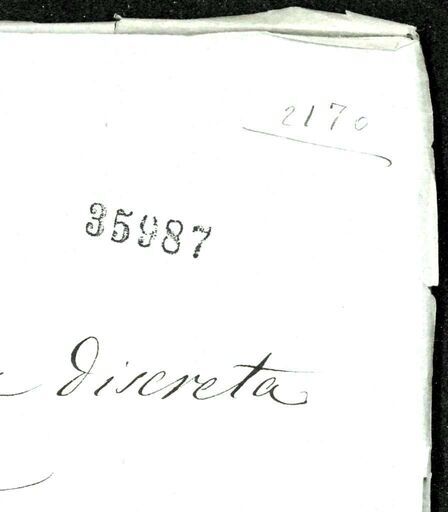 2170
35987
discreta